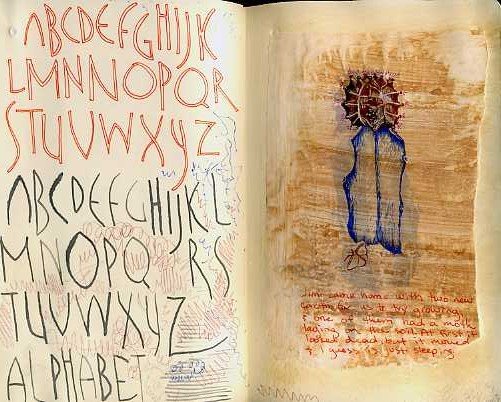 ABCDEFGHIJK
LMNNOPQR
STUVWXYZ
ABCDEFGHIJKL
MNOPQRS
TUVWXYZ
ALPHABET
came home with two new
cacti for us to try growing
& one of them had a moth
laying on the soil. At first it
looked dead but it moved
& I guess is just sleeping.